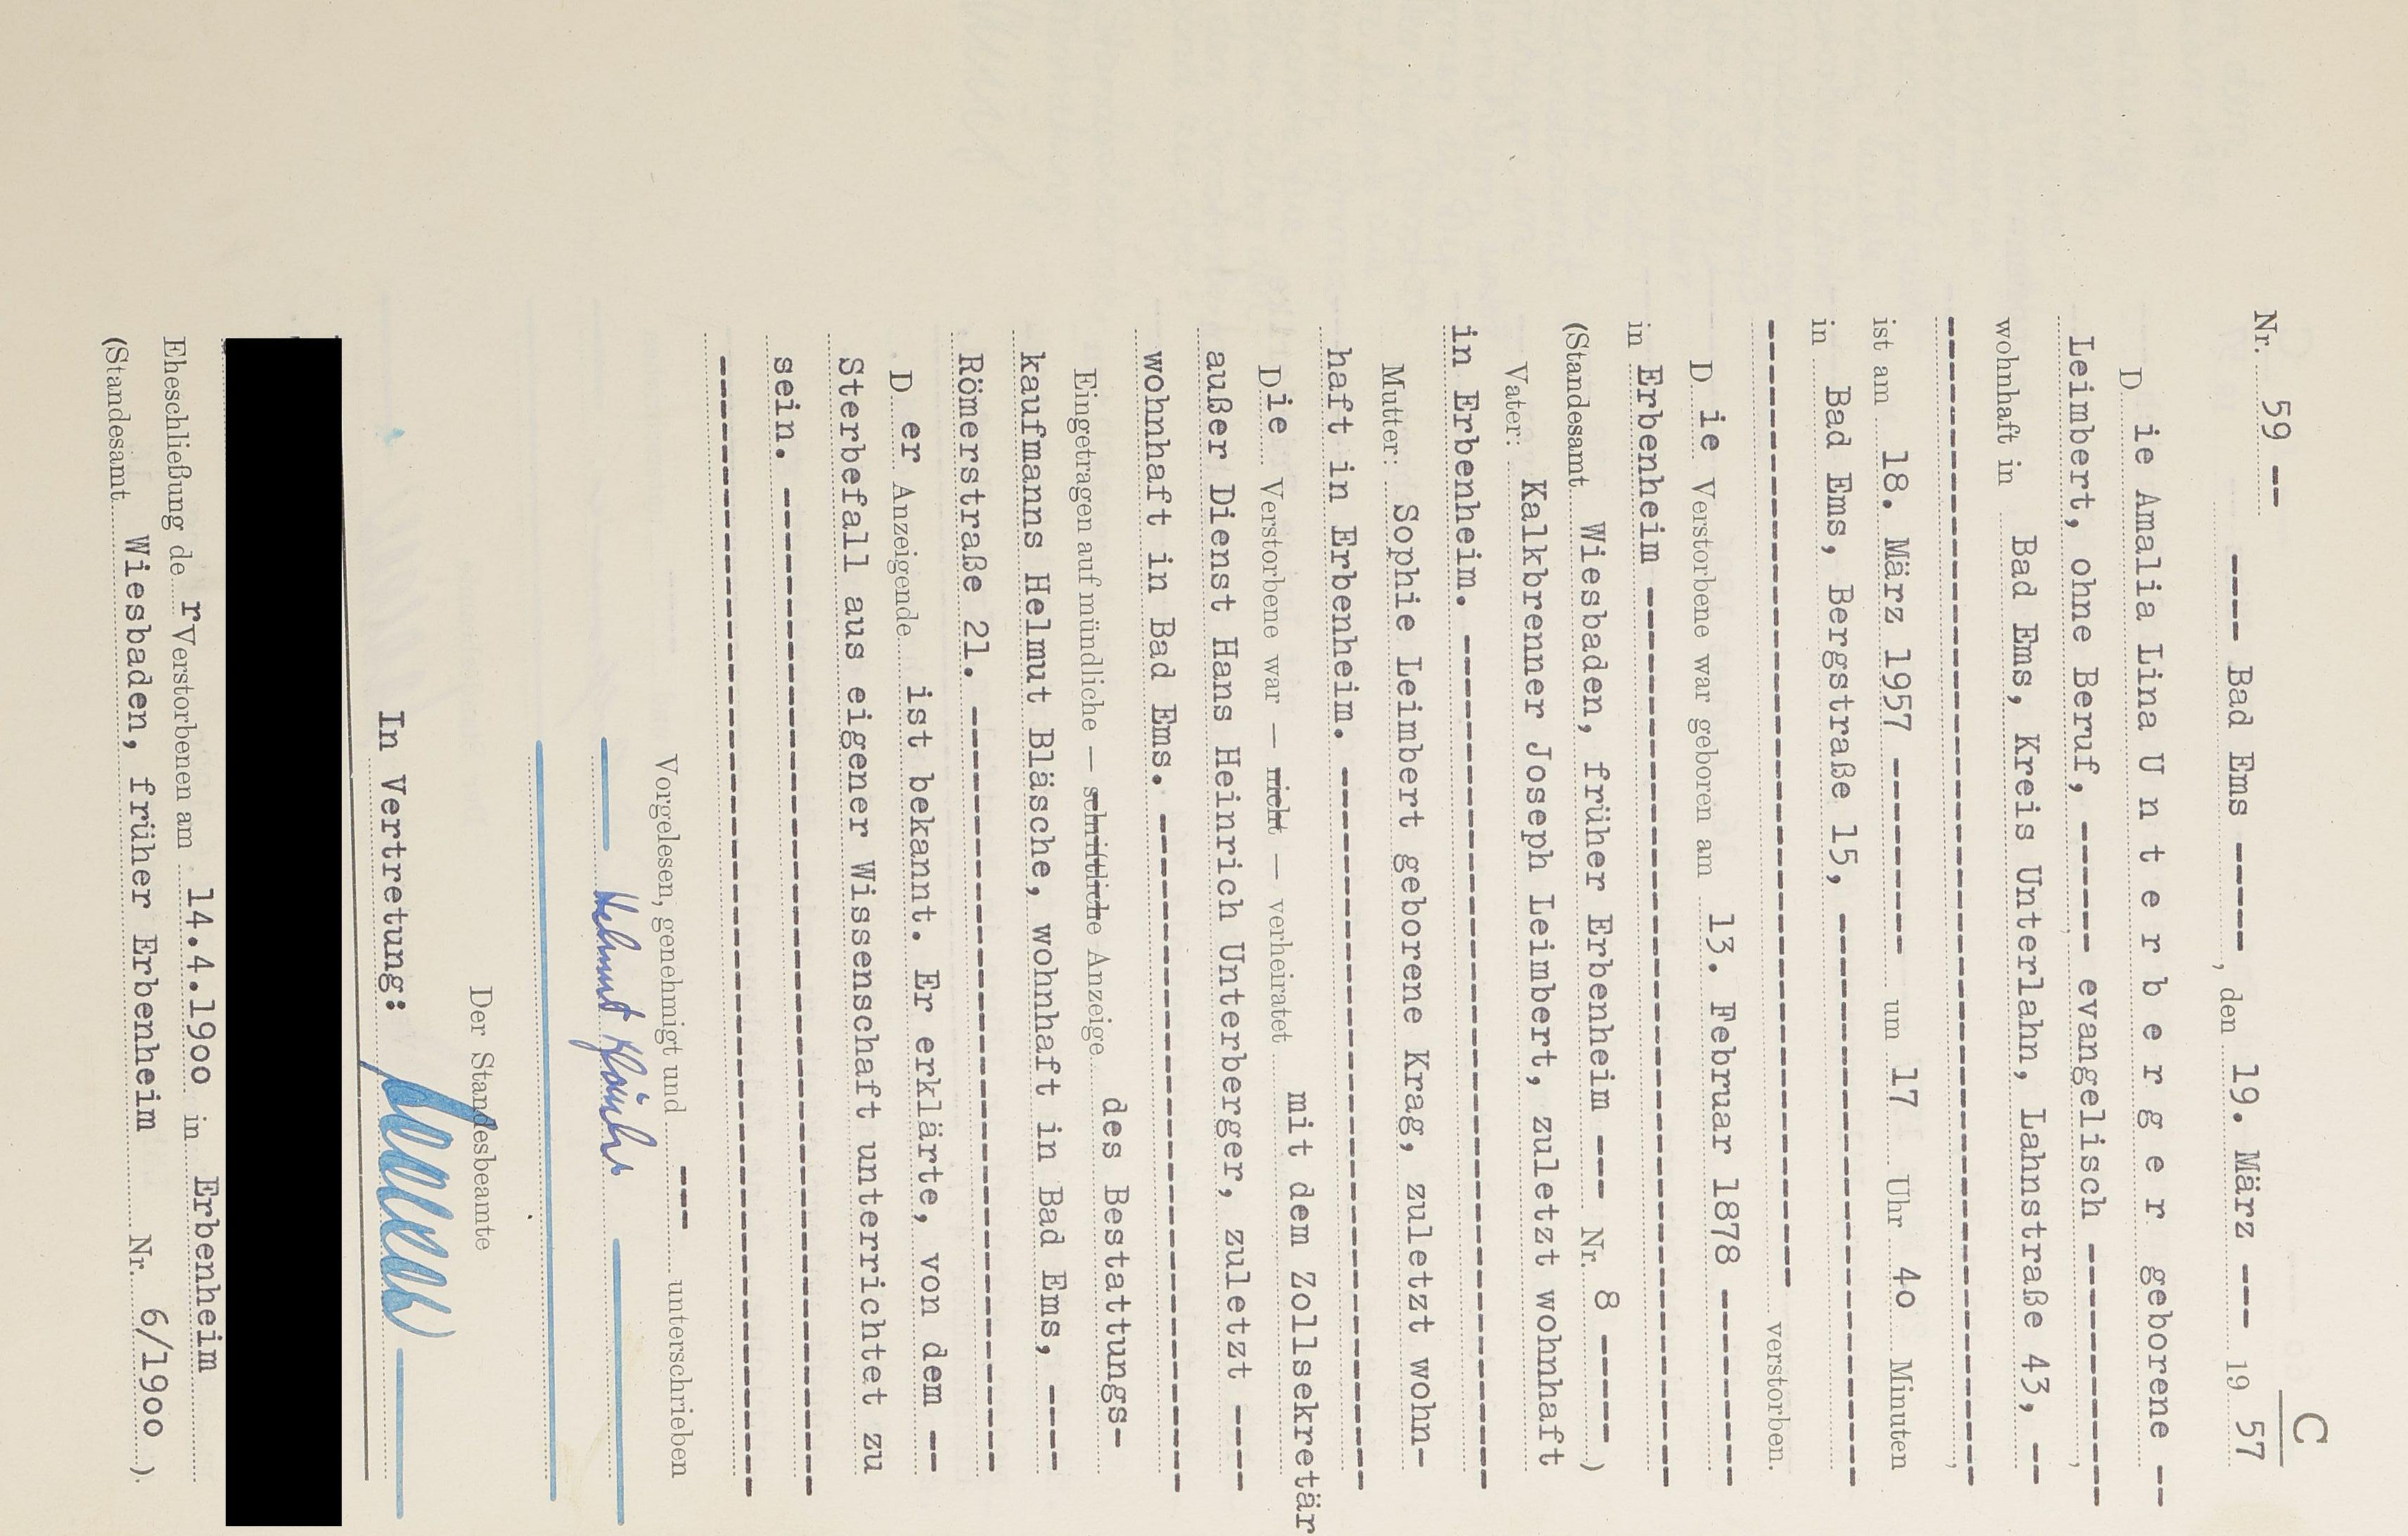 C
Nr. 59 --
---- Bad Ems -----, den 19. März --- 19 57
D ie Amalia Lina U n t e r b e r g e r geborene --
Leimbert, ohne Beruf, ------ evangelisch ----------,
wohnhaft in Bad Ems, Kreis Unterlahn, Lahnstraße 43, --
------------------------------------------------------,
ist am 18. März 1957 --------- um 17 Uhr 4o Minuten
in Bad Ems, Bergstraße 15, --------------------------
---------------------------------------------- verstorben.
D ie Verstorbene war geboren am 13. Februar 1878 ---------
in Erbenheim ------------------------------------------
(Standesamt Wiesbaden, früher Erbenheim --- Nr. 8 -----)
Vater: Kalkbrenner Joseph Leimbert, zuletzt wohnhaft
in Erbenheim. ----------------------------------------
Mutter: Sophie Leimbert geborene Krag, zuletzt wohn-
haft in Erbenheim. ----------------------------------
Die Verstorbene war — nicht — verheiratet mit dem Zollsekretär
außer Dienst Hans Heinrich Unterberger, zuletzt ----
wohnhaft in Bad Ems. --------------------------------
Eingetragen auf mündliche — schriftliche Anzeige des Bestattungs-
kaufmanns Helmut Bläsche, wohnhaft in Bad Ems, ----
Römerstraße 21. -------------------------------------
D er Anzeigende ist bekannt. Er erklärte, von dem --
Sterbefall aus eigener Wissenschaft unterrichtet zu
sein. -----------------------------------------------
------------------------------------------------------
Vorgelesen, genehmigt und --- unterschrieben
Helmut Bläsche
Der Standesbeamte
In Vertretung:
Eheschließung de r Verstorbenen am 14.4.19oo in Erbenheim
(Standesamt Wiesbaden, früher Erbenheim Nr. 6/19oo ).